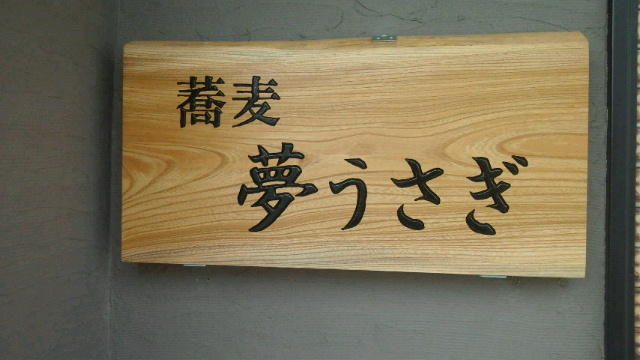 蕎麦
夢うさぎ